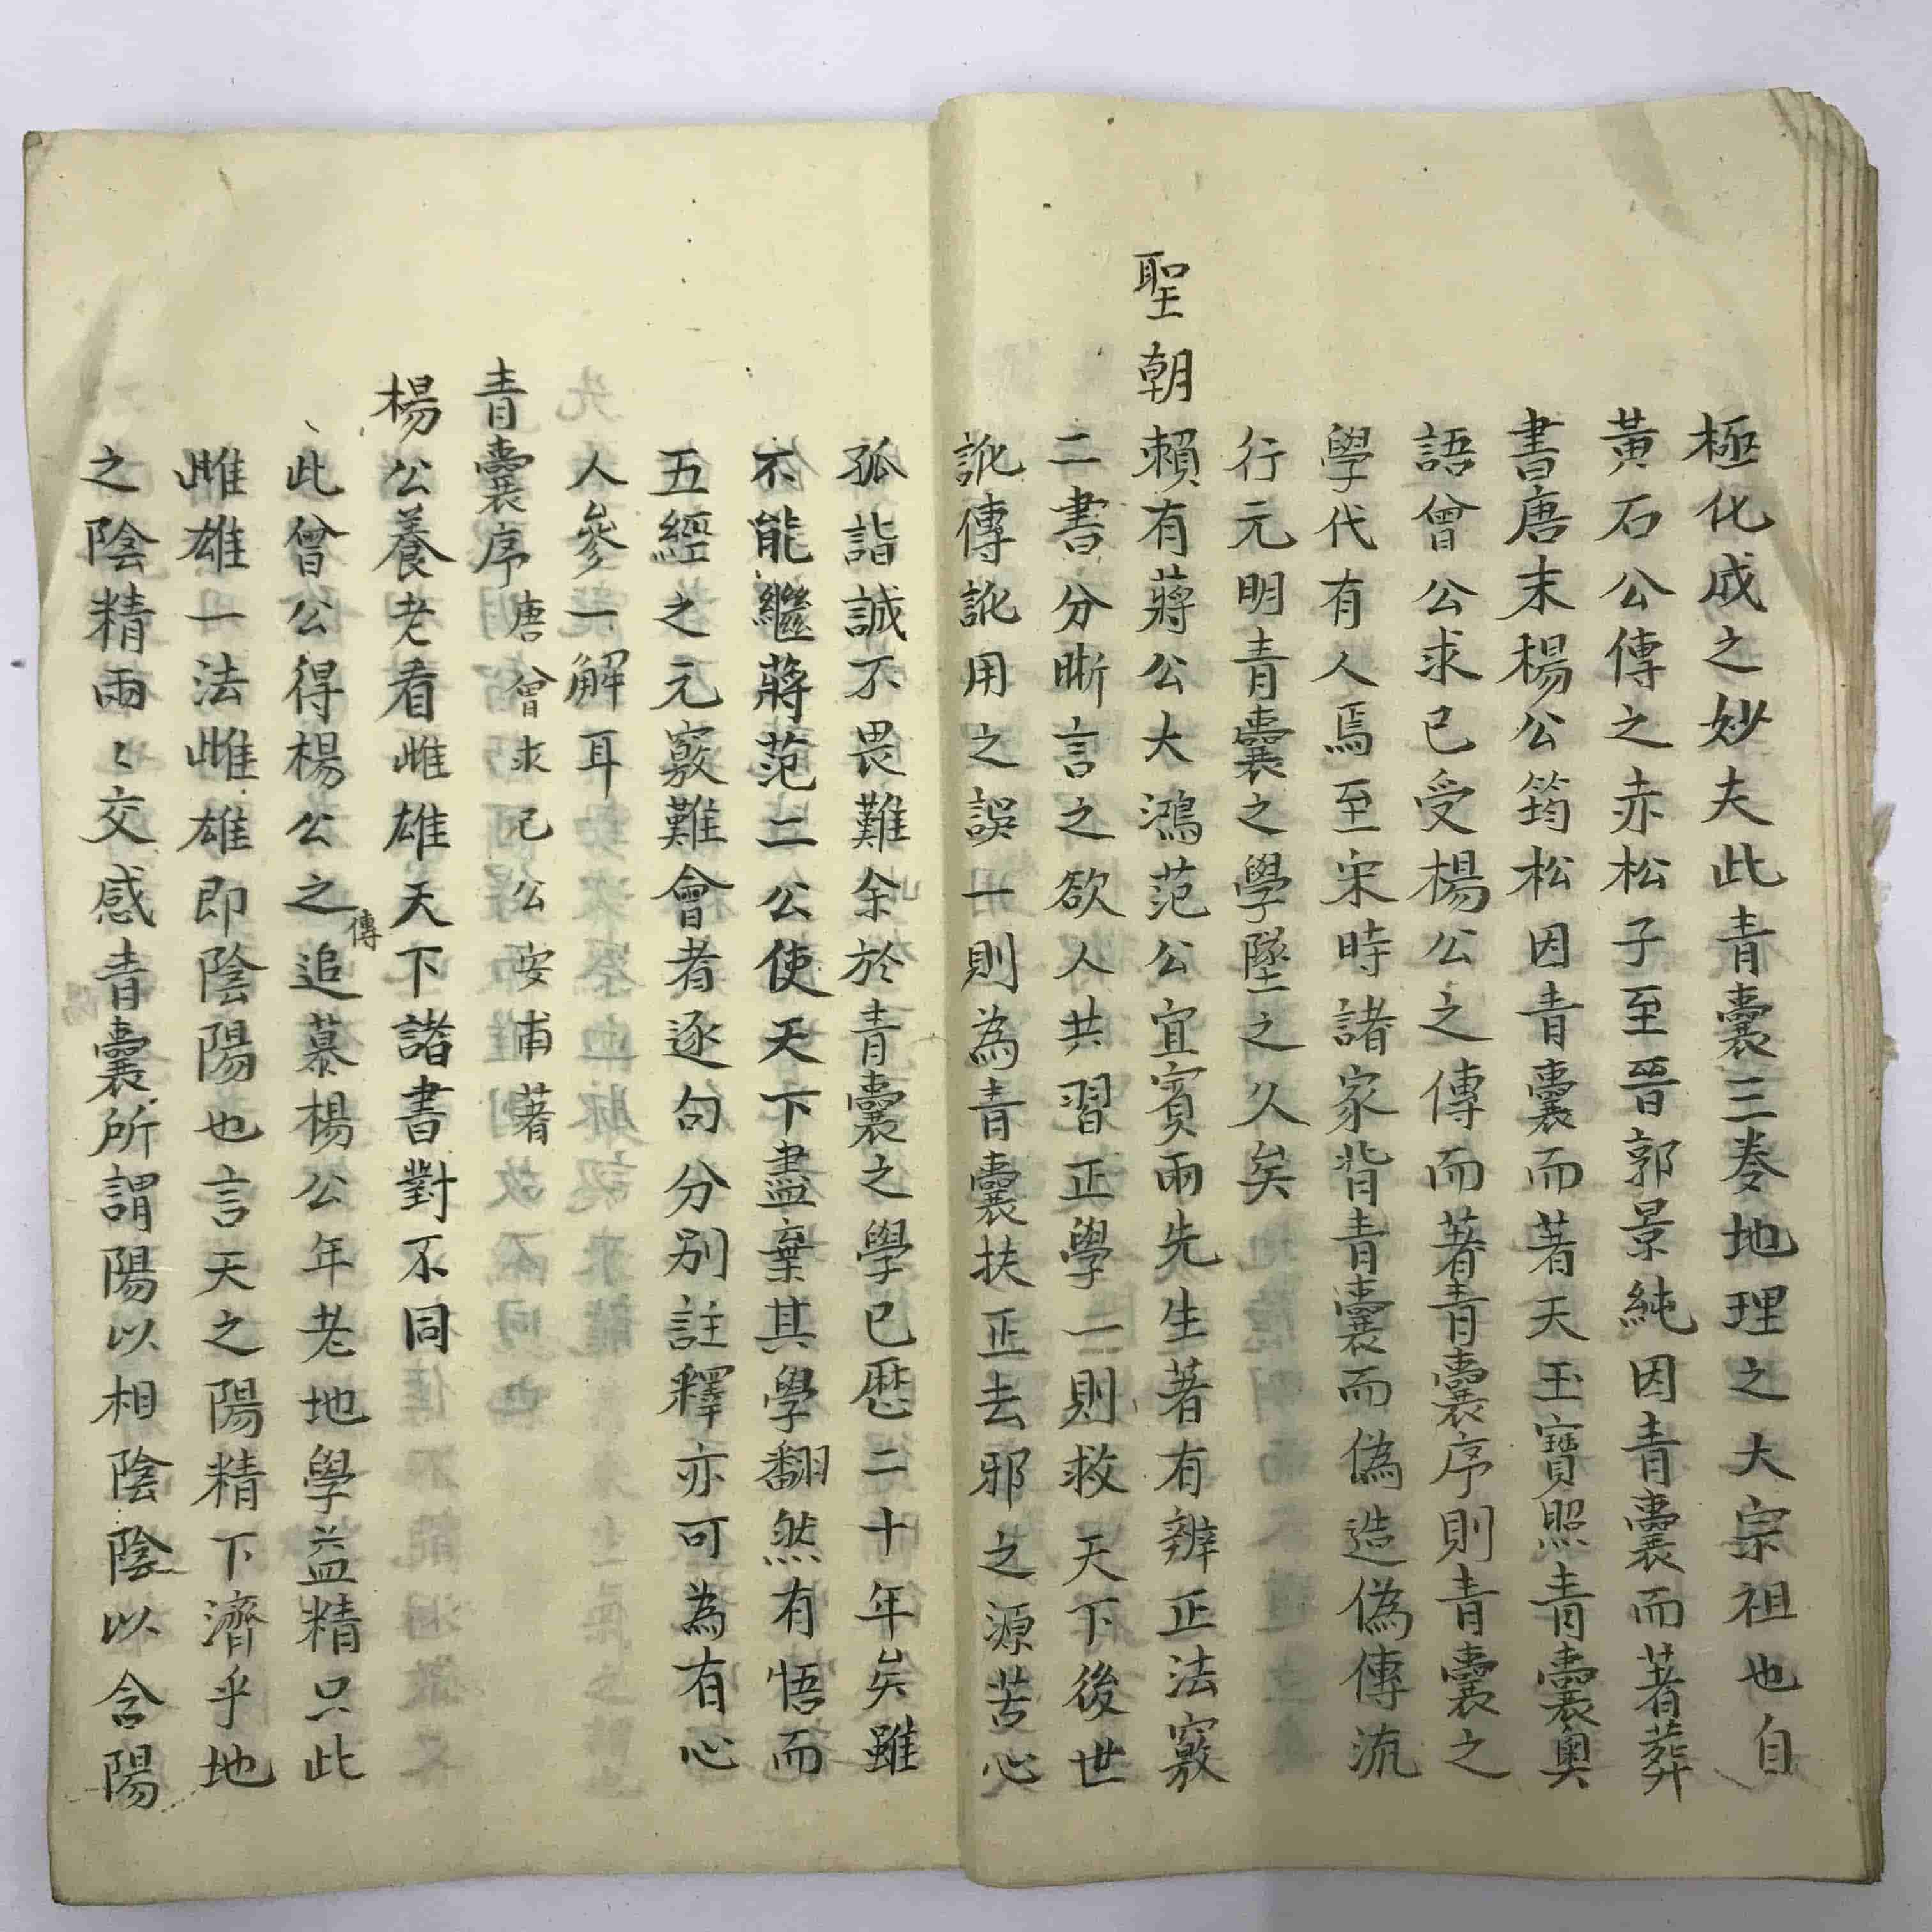 極化成之妙夫此青囊三卷地理之大宗祖也自
黃石公傳之赤松子至晉郭景純因青囊而著葬
書唐末楊公筠松因青囊而著天玉寶照青囊奧
語曾公求已受楊公之傳而著青囊序則青囊之
學代有人焉至宋時諸家背青囊而偽造偽傳流
行元明青囊之學墜之久矣
聖朝賴有蔣公大鴻范公宜賓兩先生著有辨正法竅
二書分晰言之欲人共習正學一則救天下後世
訛傳訛用之誤一則為青囊扶正去邪之源苦心
孤詣誠不畏難余於青囊之學已歷二十年矣雖
不能繼蔣范二公使天下盡棄其學翻然有悟而
五經之元竅難會者逐句分別註釋亦可為有心
人參一解耳
青囊序 唐曾求己公安甫著
楊公養老看雌雄天下諸書對不同
此曾公得楊公之傳追慕楊公年老地學益精只此
雌雄一法雌雄即陰陽也言天之陽精下濟乎地
之陰精兩々交感青囊所謂陽以相陰陰以含陽